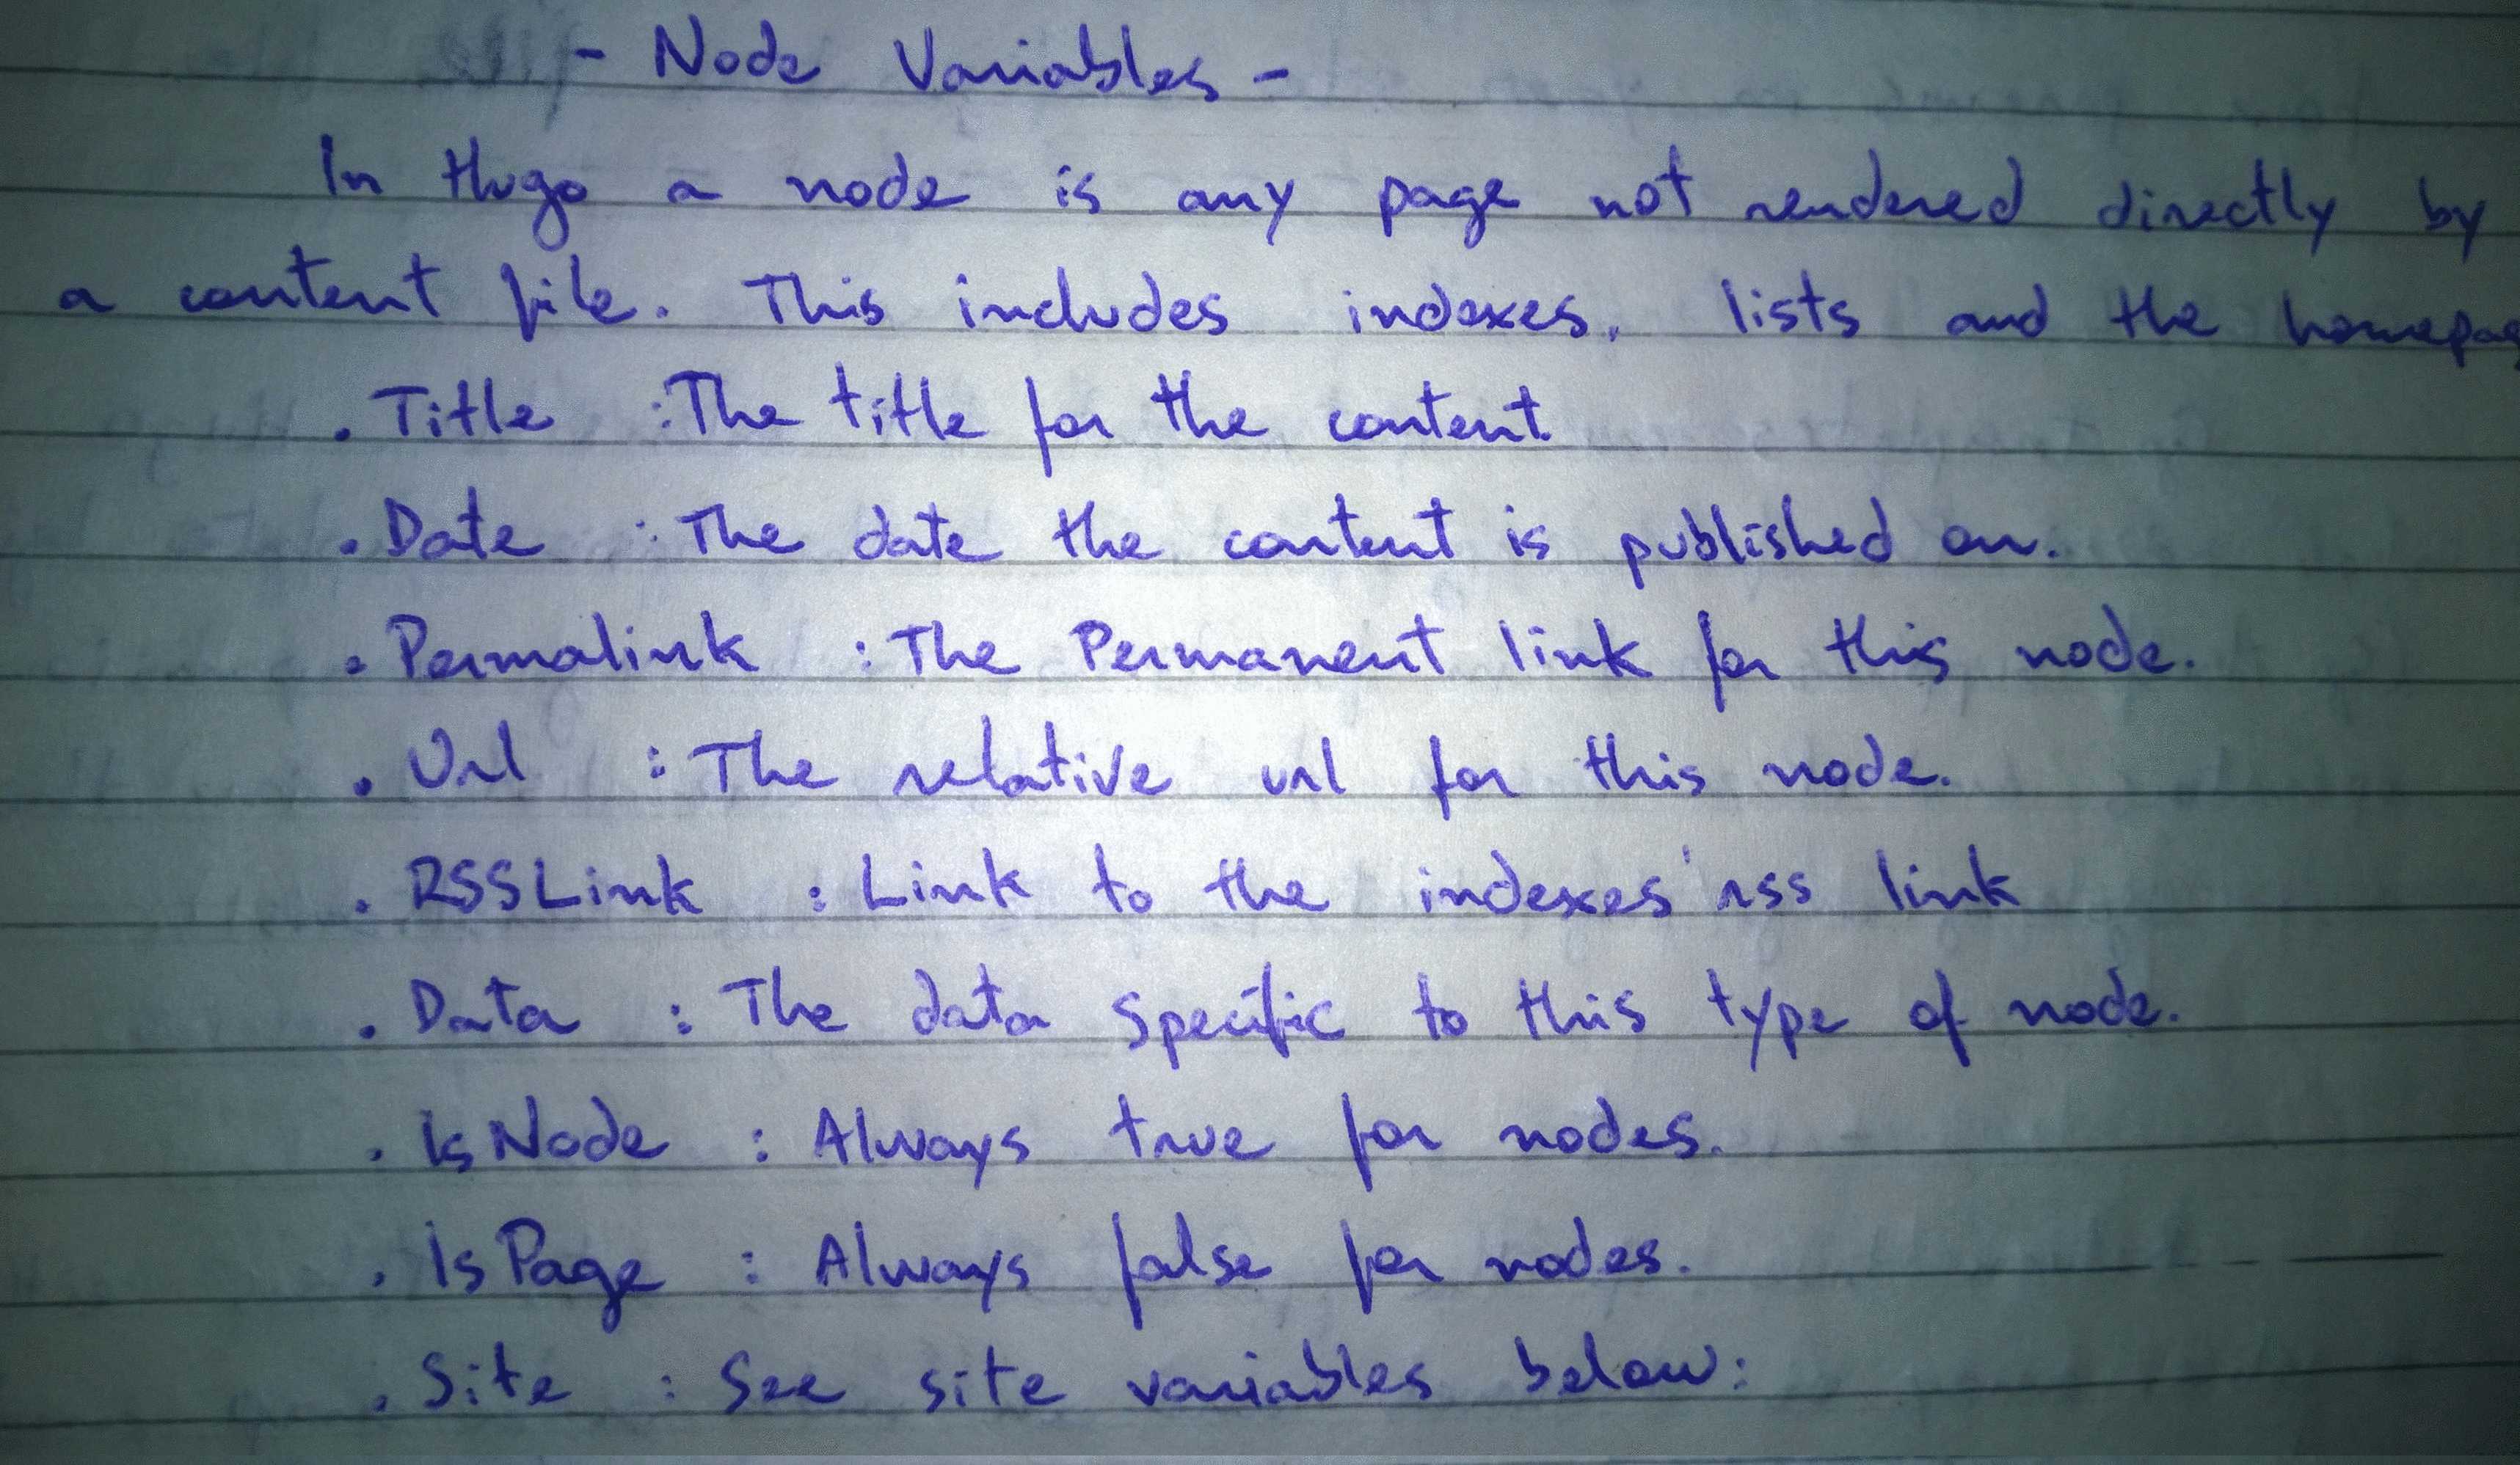 - Node Variables -
In Hugo a node is any page not rendered directly by
a content file. This includes indexes, lists and the homepag
.Title :The title for the content.
.Date :The date the content is published on.
.Permalink :The Permanent link for this node.
.Url :The relative url for this node.
.RSSLink :Link to the indexes' rss link
.Data :The data specific to this type of node.
.IsNode :Always true for nodes.
.IsPage :Always false for nodes.
.Site :See site variables below: